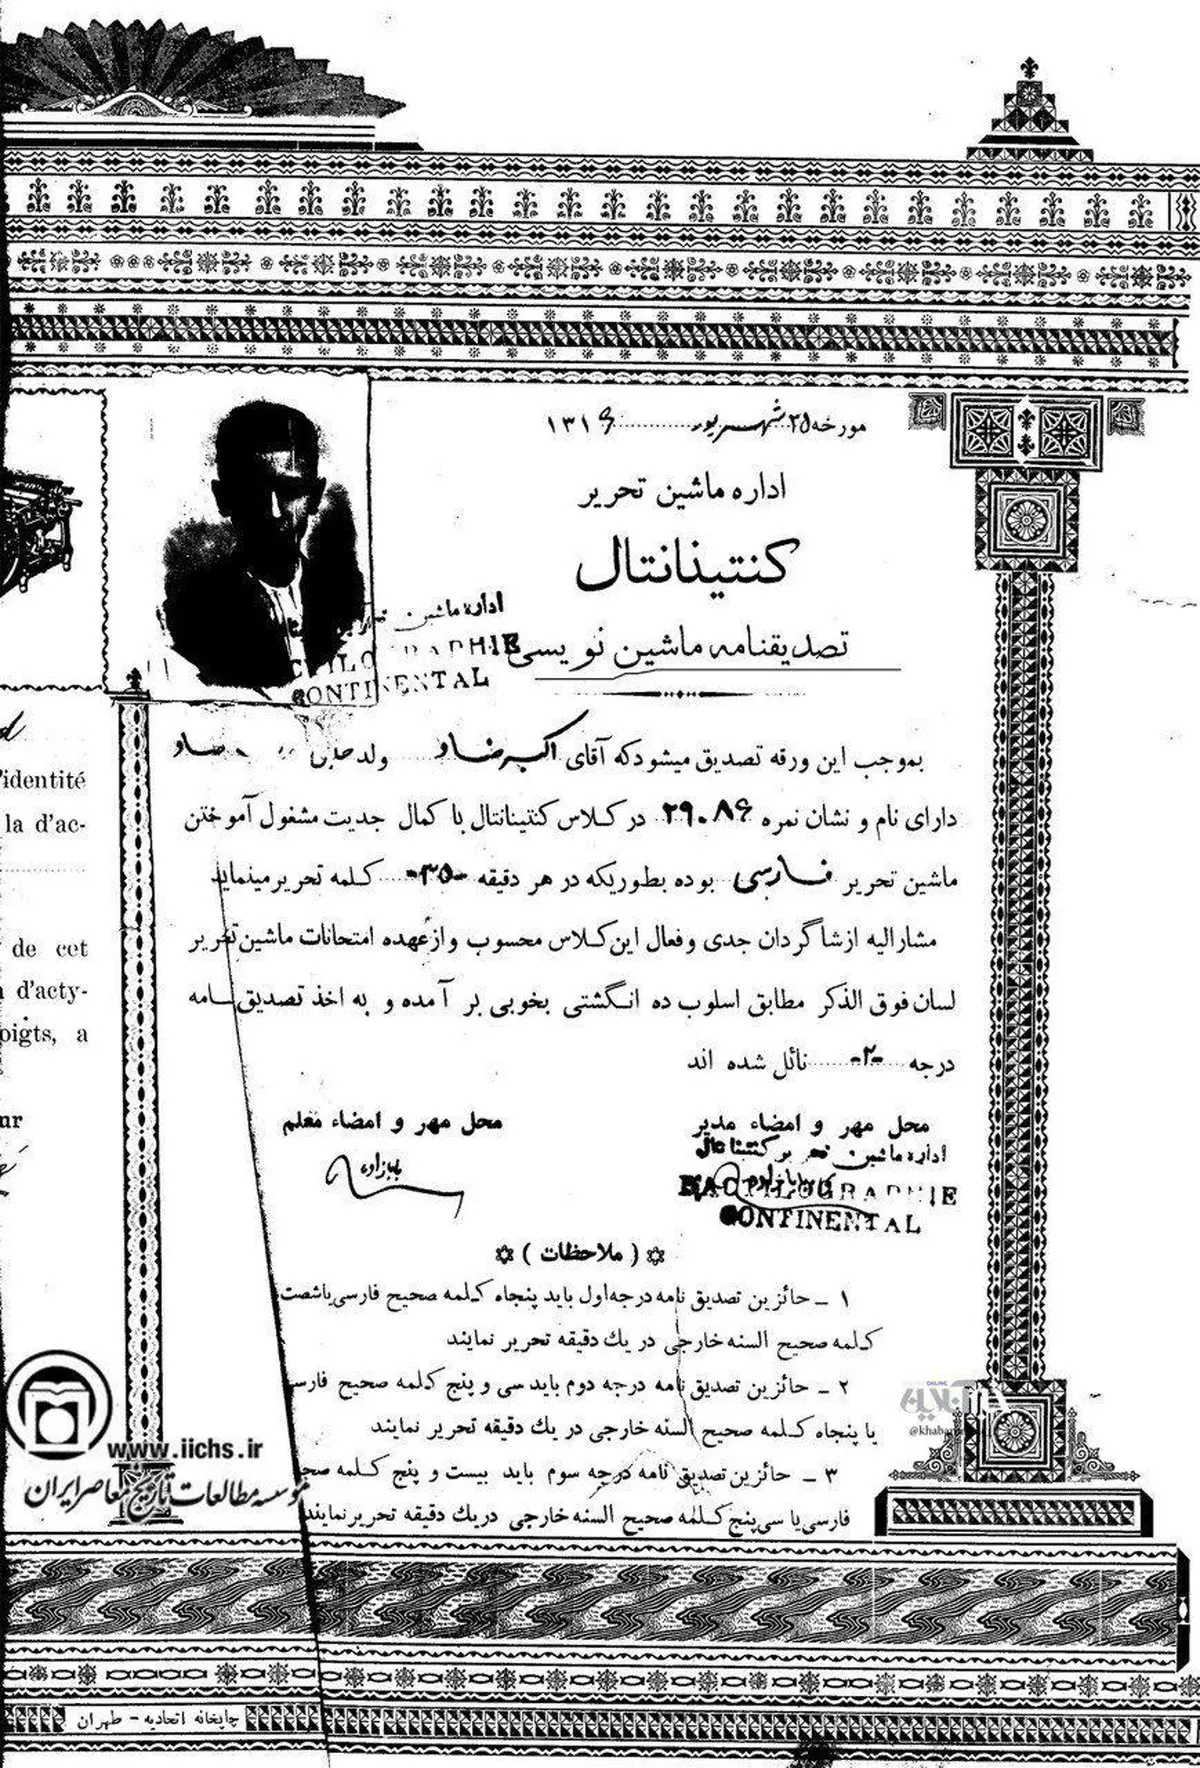 مورخه ۲۵ شهریور ۱۳۱۶
اداره ماشین تحریر
کنتینانتال
تصدیقنامه ماشین نویسی
اداره ماشین
CONTINENTAL
بموجب این ورقه تصدیق میشود که آقای اکبر ولد
دارای نام و نشان نمره ۲۹۰۸۶ در کلاس کنتینانتال با کمال جدیت مشغول آموختن
ماشین تحریر فارسی بوده بطوریکه در هر دقیقه -۳۵- کلمه تحریر مینماید
مشارالیه از شاگردان جدی و فعال این کلاس محسوب و از عهده امتحانات ماشین تحریر
لسان فوق الذکر مطابق اسلوب ده انگشتی بخوبی بر آمده و به اخذ تصدیق نامه
درجه -۲- نائل شده اند
محل مهر و امضاء مدیر
محل مهر و امضاء معلم
بابازاده
اداره ماشین تحریر کنتینانتال
DACTILOGRAPHIE
CONTINENTAL
( ملاحظات )
۱ ـ حائزین تصدیق نامه درجه اول باید پنجاه کلمه صحیح فارسی یا شصت
کلمه صحیح السنه خارجی در یك دقیقه تحریر نمایند
۲ ـ حائزین تصدیق نامه درجه دوم باید سی و پنج کلمه صحیح فارسی
یا پنجاه کلمه صحیح السنه خارجی در یك دقیقه تحریر نمایند
۳ ـ حائزین تصدیق نامه درجه سوم باید بیست و پنج کلمه صحیح
فارسی یا سی پنج کلمه صحیح السنه خارجی در یك دقیقه تحریر نمایند
چاپخانه اتحادیه - طهران
l'identité
la d'ac-
de cet
d'acty-
doigts, a
www.iichs.ir
موسسه مطالعات تاریخ معاصر ایران
آنلاین
ONLINE